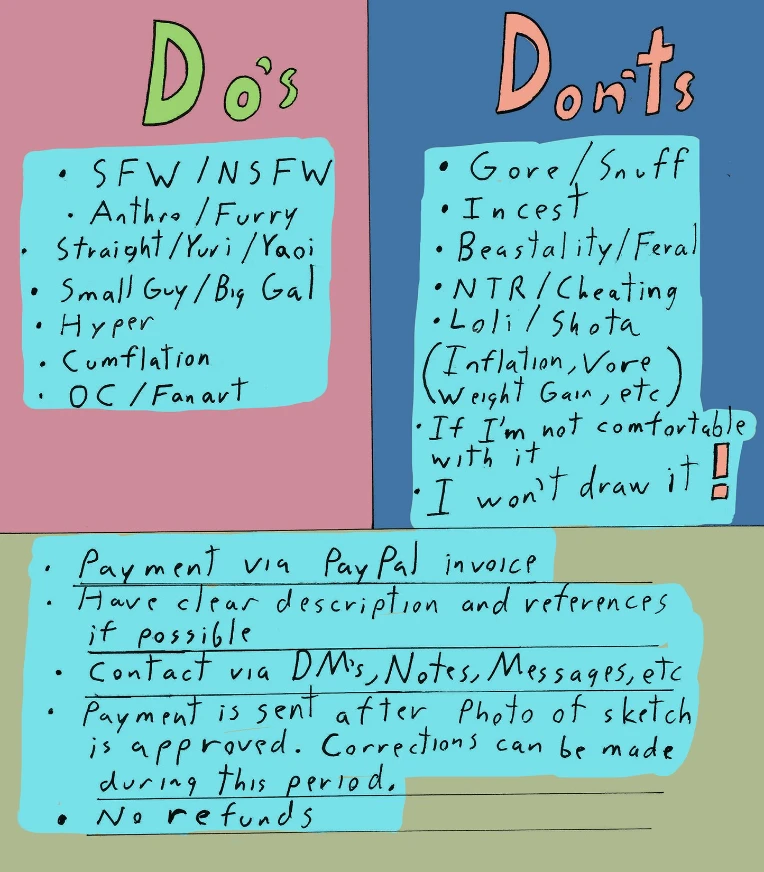 Do's
• SFW/NSFW
• Anthro/Furry
• Straight/Yuri/Yaoi
• Small Guy/Big Gal
• Hyper
• Cumflation
• OC/Fanart
Don'ts
• Gore/Snuff
• Incest
• Beastality/Feral
• NTR/Cheating
• Loli/Shota
(Inflation, Vore
Weight Gain, etc)
• If I'm not comfortable
with it
• I won't draw it!
• Payment via PayPal invoice
• Have clear description and references
if possible
• Contact via DM's, Notes, Messages, etc
• Payment is sent after Photo of sketch
is approved. Corrections can be made
during this period.
• No refunds